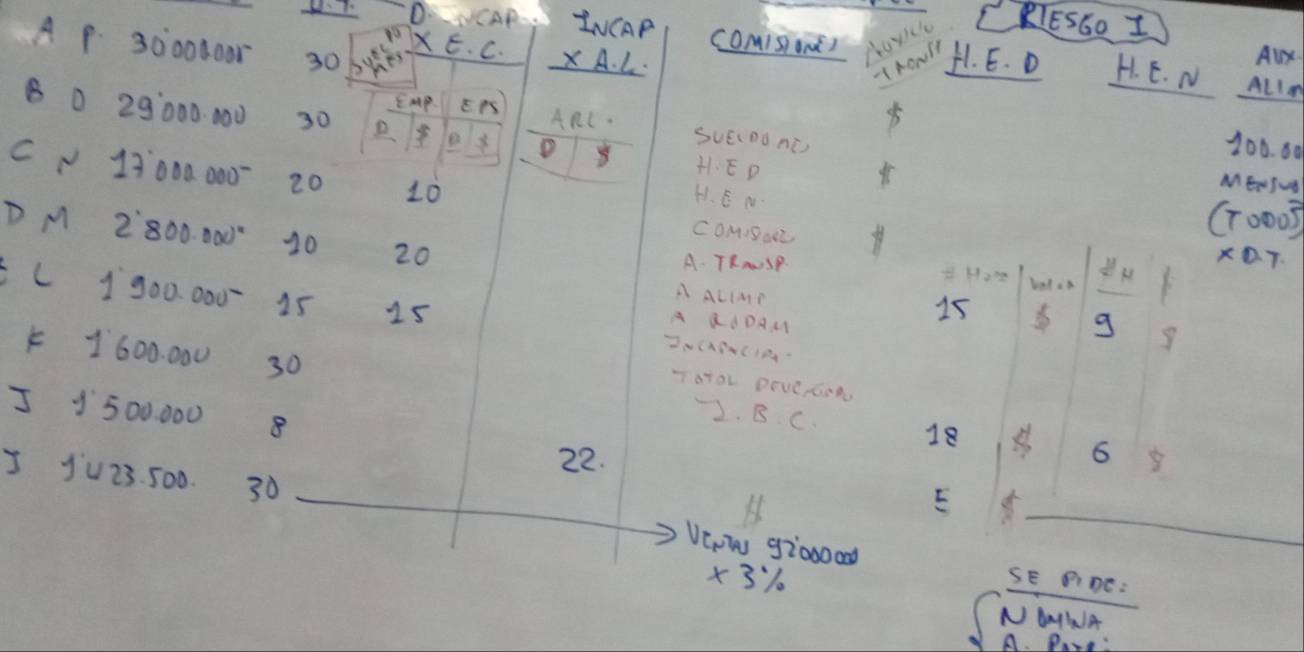 D. INCAP
X E.C.
INCAP
X A.L.
COMISIONES
AUXILIO
TRANSP
H.E.D
RIESGO I
H.E.N
AUX.
ALIM
A P 30'000.000
30
SUELDO
MES
B O 29'000.000
30
EMP. EPS
D $ D $
ARL.
D $
$
100.00
MENSUA
(TODOS)
X D.T.
C N 17'000.000
20
10
SUELDO ME
H.E.D
H.E.N.
$
D M 2'800.000
10
20
COMISIONES
A. TRANSP.
$
L 1'900.000
15
15
A ALIMP
A RODAM
# HORAS
VALOR
# H
$
15
$
9
$
K 1'600.000
30
INCAPACIDA.
TOTAL DEVENGADO
I.B.C.
J 1'500.000
8
22.
18
$
6
$
J 1'423.500.
30
VENTAS 92'000000
X 3%
$
5
$
SE PIDE:
NOMINA